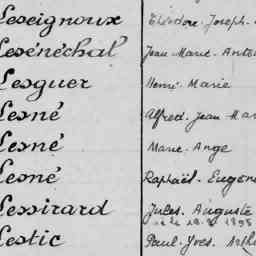 Leseignoux Théodore-Joseph-
Lesénéchal Jean Marie-Anto
Lesguer Henri-Marie
Lesné Alfred-Jean Mar
Lesné Marie-Ange
Lesné Raphaël-Eugene
Lessirard Jules-Auguste
1895
Lestic Paul-Yves-Arth